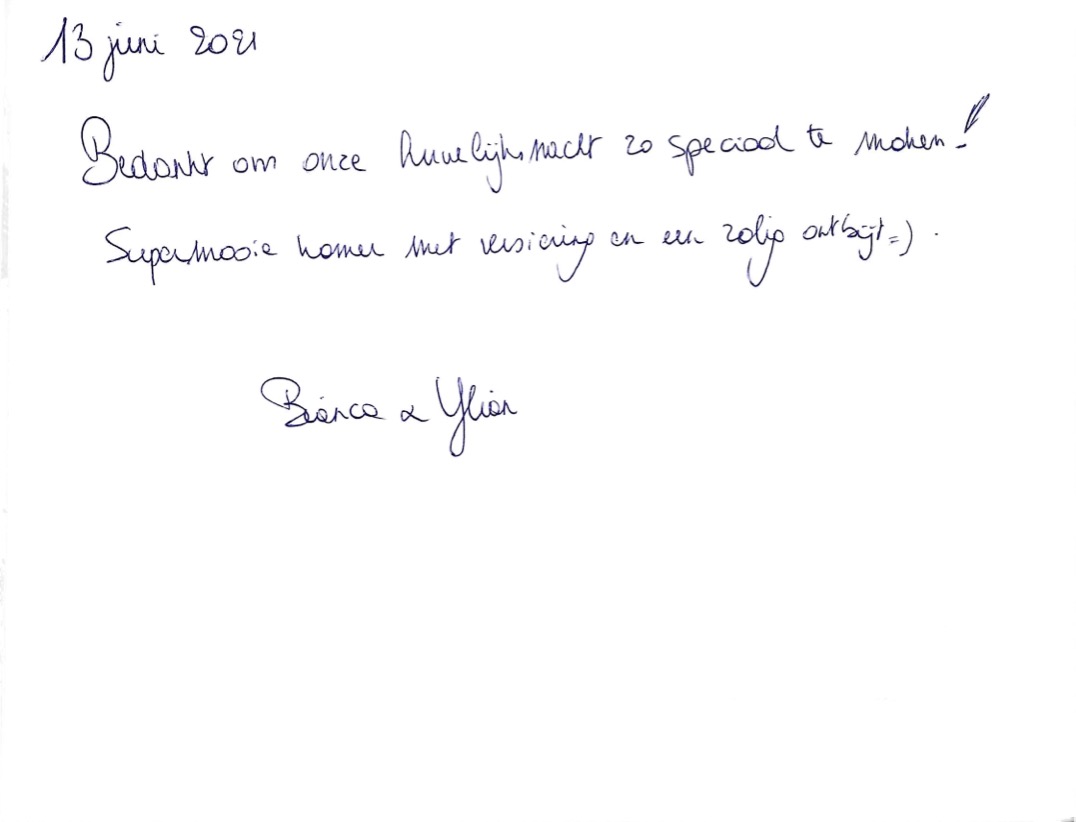 13 juni 2021
Bedankt om onze huwelijksnacht zo speciaal te maken!
Supermooie kamer met versiering en een zalig ontbijt =).
Bianca & Ylian